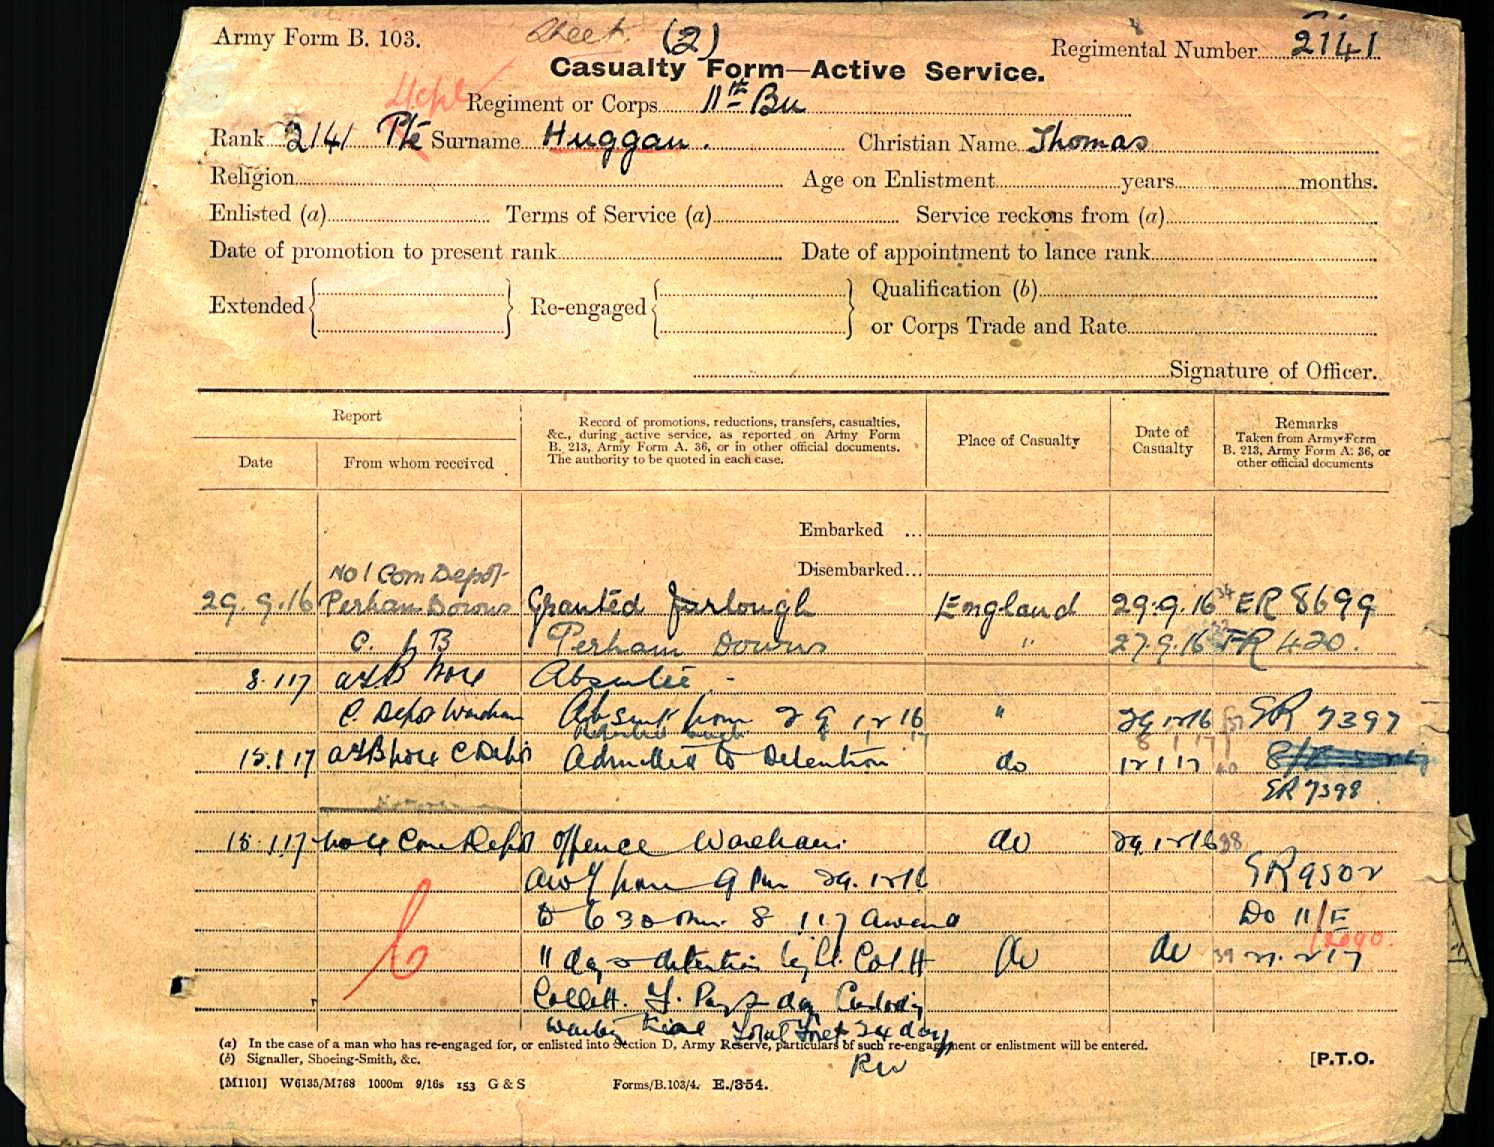 Army Form B. 103.
Sheet. (2)
Regimental Number 2141
Casualty Form—Active Service.
Regiment or Corps 11th Bn
Rank 2141 Pte Surname Huggan. Christian Name Thomas
Religion Age on Enlistment years months.
Enlisted (a) Terms of Service (a) Service reckons from (a)
Date of promotion to present rank Date of appointment to lance rank
Extended Re-engaged Qualification (b)
or Corps Trade and Rate
Signature of Officer.
Report
Date From whom received
Record of promotions, reductions, transfers, casualties,
&c., during active service, as reported on Army Form
B. 213, Army Form A. 36, or in other official documents.
The authority to be quoted in each case.
Place of Casualty
Date of
Casualty
Remarks
Taken from Army Form
B. 213, Army Form A. 36, or
other official documents
Embarked ...
Disembarked...
No 1 Com Depot
29.9.16 Perham Downs Granted furlough England 29.9.16 ER 8699
Perham Downs " 27.9.16 420.
8.1.17 Absentee -
C. Depot Wareham Absent from 29 12 16 " 29 12 16 ER 7397
15.1.17 Admitted to Detention do 12 1 17
ER 7398
15.1.17 No 4 Com Depot Offence Wareham. do 29.12.16 38
AWL from 9 pm 29.12.16 ER 9502
to 6 30 8 1 17 Award Do 11/E
11 days detention by Lt. Col. H do do 39
Collett. F. Pay 2 days Custody
trial Total Forf 24 days
RW
(a) In the case of a man who has re-engaged for, or enlisted into Section D, Army Reserve, particulars of such re-engagement or enlistment will be entered.
(b) Signaller, Shoeing-Smith, &c.
[P.T.O.
[M1101] W6135/M768 1000m 9/16s 153 G & S Forms/B.103/4. E./354.